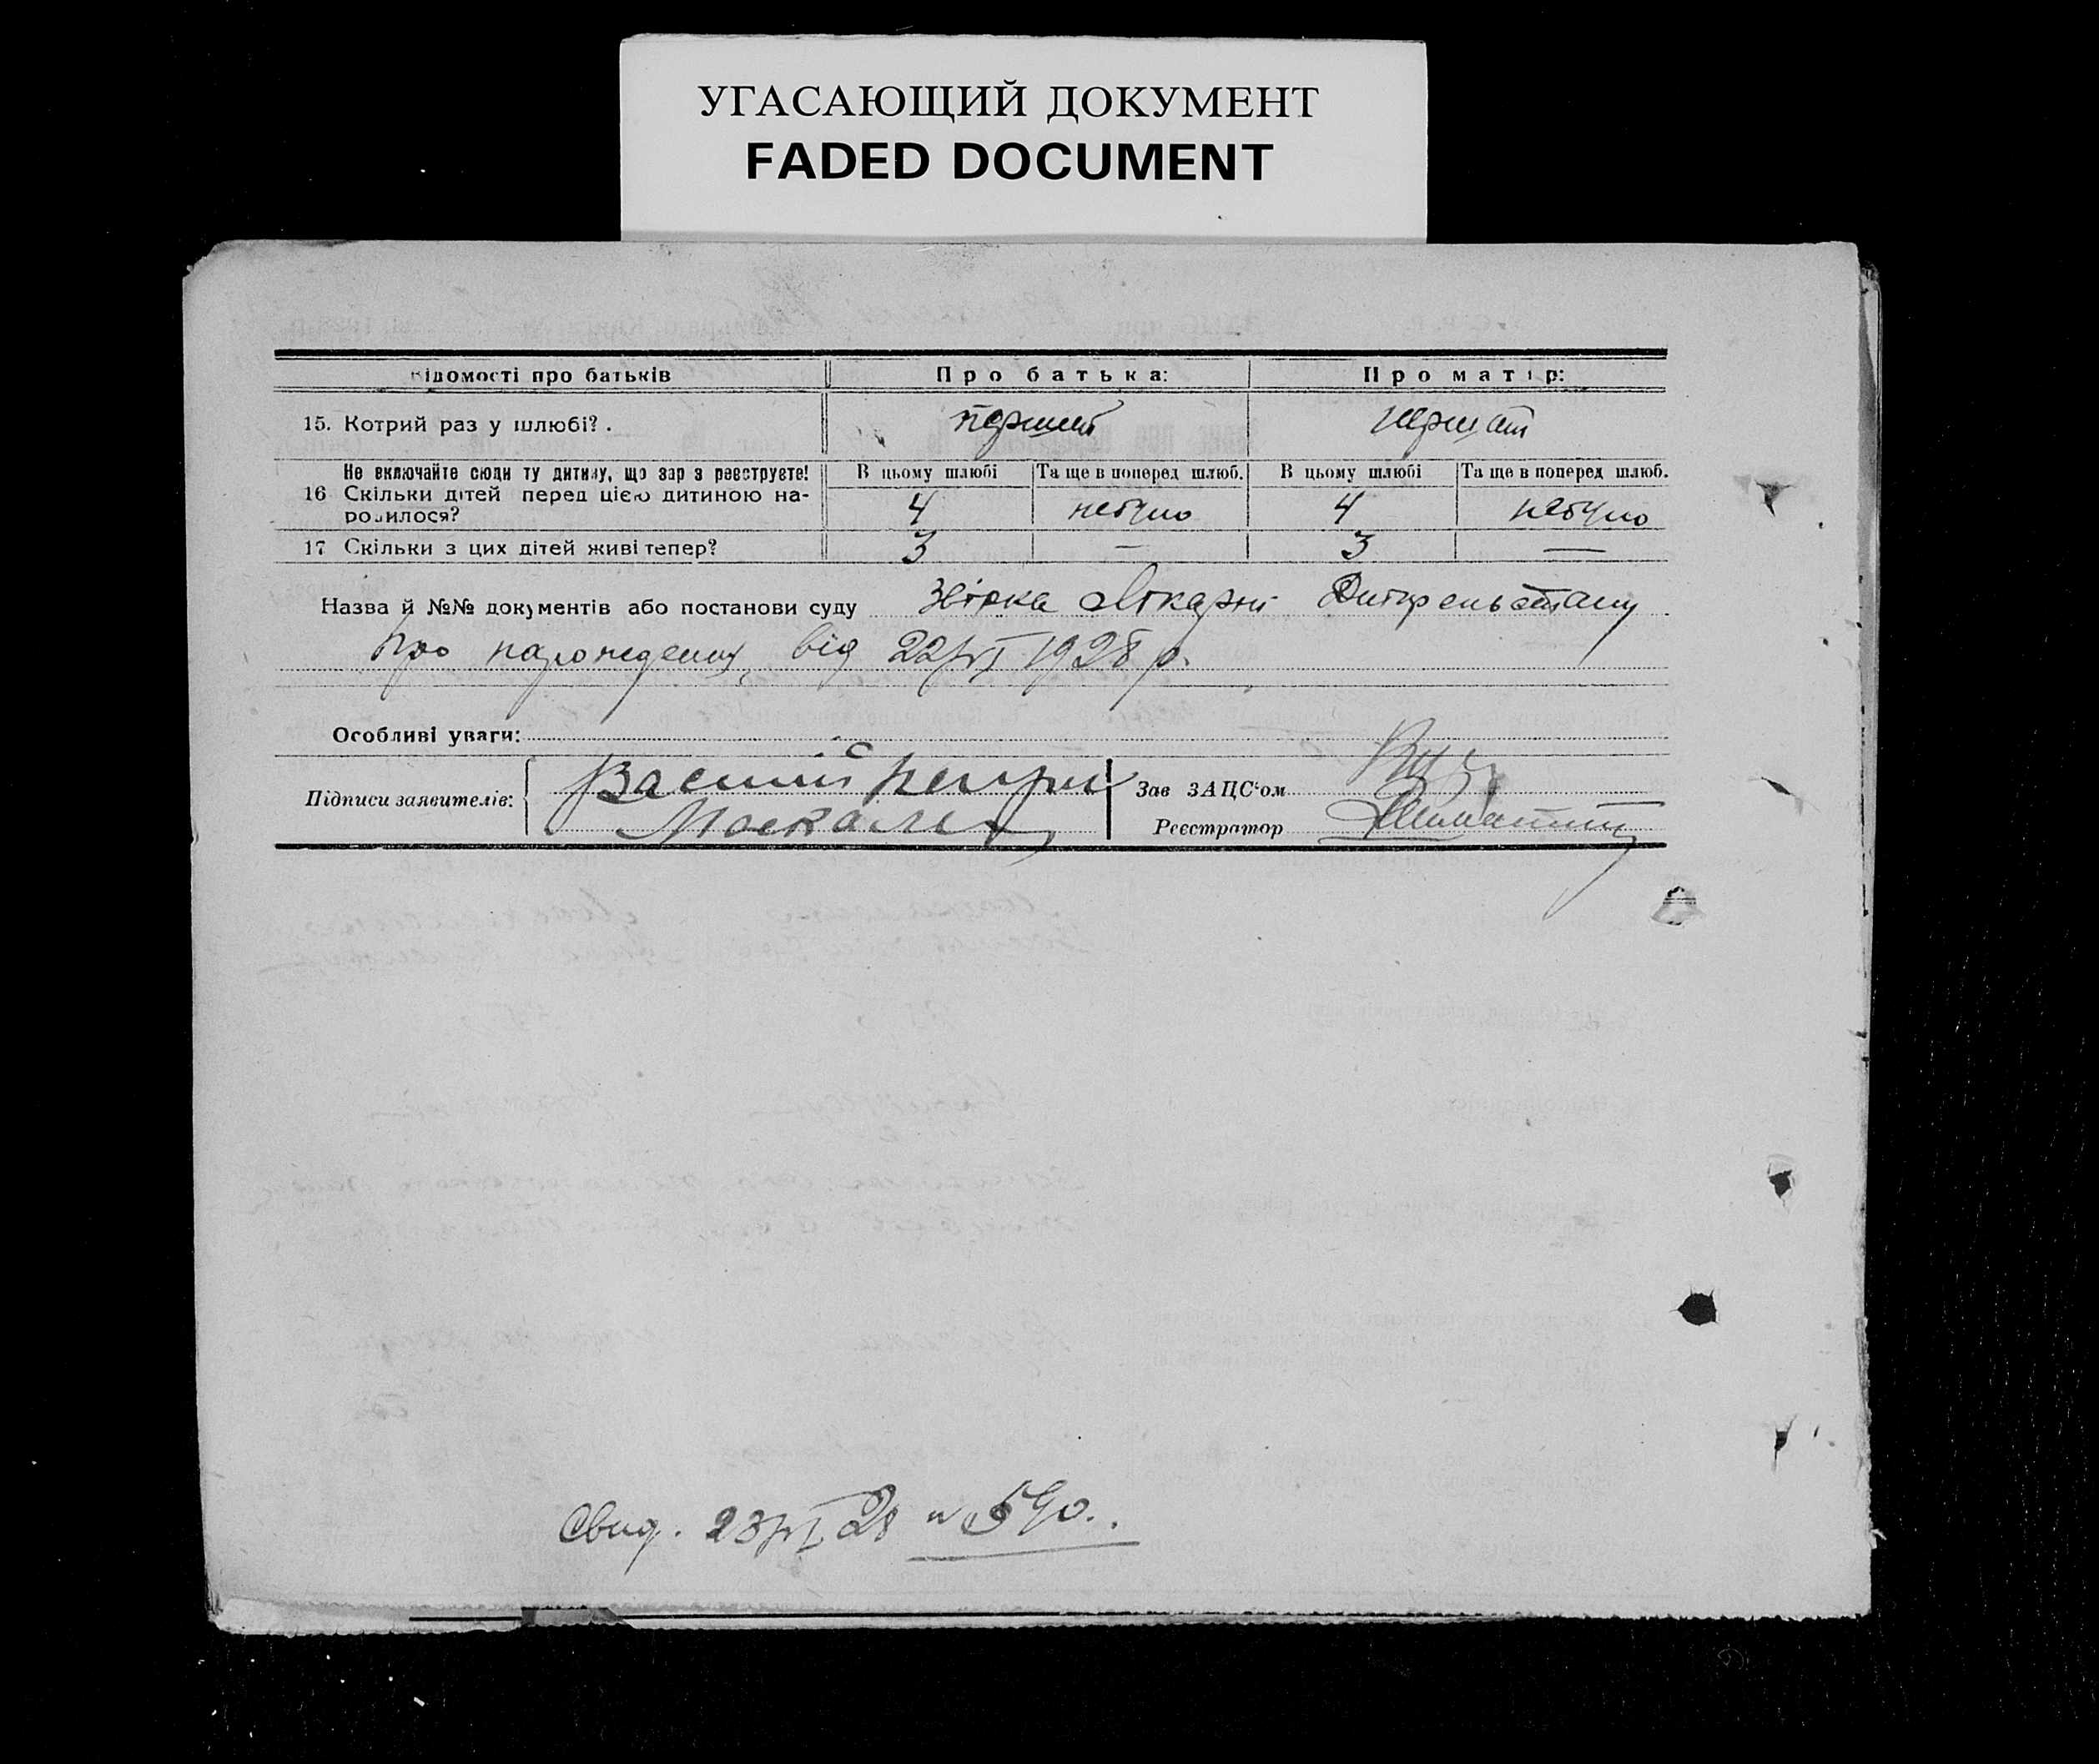 УГАСАЮЩИЙ ДОКУМЕНТ
FADED DOCUMENT
Відомості про батьків Про батька: Про матір:
15. Котрий раз у шлюбі? . перший
Не включайте сюди ту дитину, що зараз реєструєте! В цьому шлюбі Та ще в поперед шлюб. В цьому шлюбі Та ще в поперед шлюб.
16 Скільки дітей перед цією дитиною на-
родилося? 4 небуло 4 небуло
17 Скільки з цих дітей живі тепер? 3 — 3 —
Назва й №№ документів або постанови суду лікарні
про народження від 22/VI 1928 р.
Особливі уваги:
Підписи заявителів: Зав ЗАЦС'ом
Реєстратор
Свид. 23/VI 28 № 590.